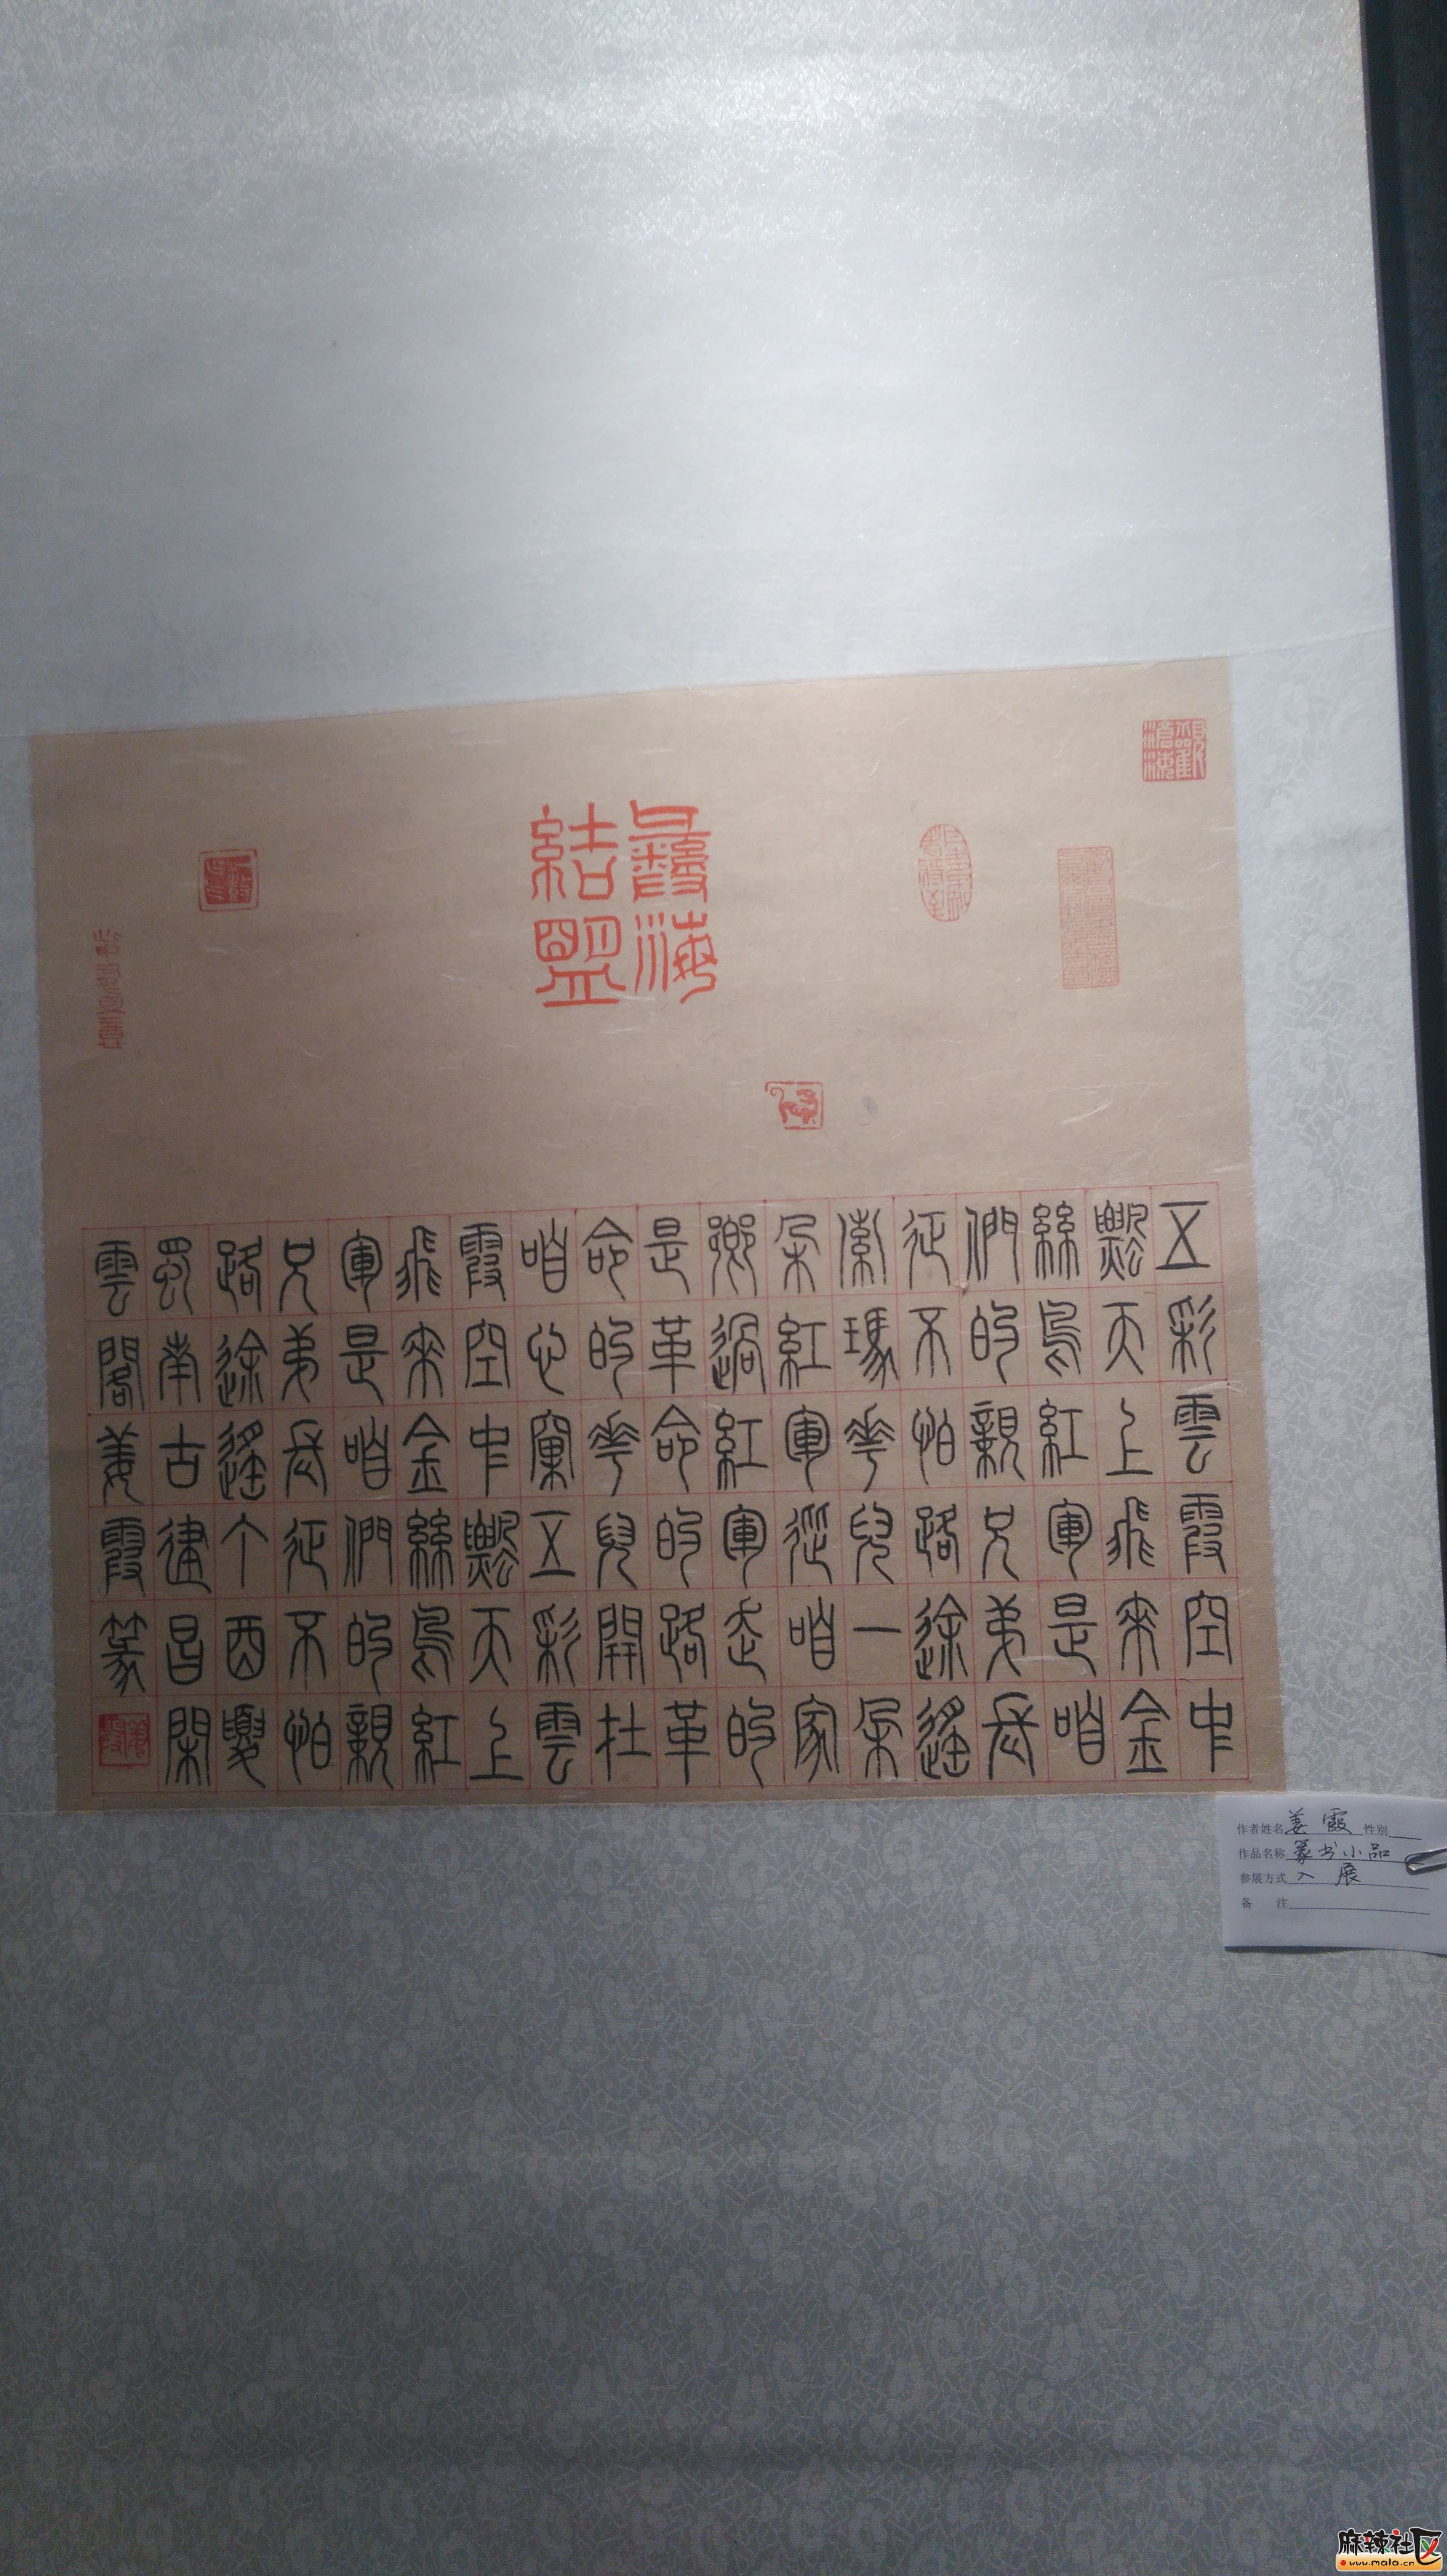 彝海
結盟
五彩雲霞空中
飄天上飛來金
絲鳥紅軍是咱
們的親兄弟長
征不怕路途遙
索瑪花兒一朵
朵紅軍從咱家
鄉過紅軍走的
是革命的路革
命的花兒開在
咱心窩五彩雲
霞空中飄天上
飛來金絲鳥紅
軍是咱們的親
兄弟長征不怕
路途遙丁酉夏
蜀南古建昌閑
雲閣姜霞篆
作者姓名 姜霞 性别
作品名称 篆书小品
参展方式 入展
备注
麻辣社区
www.mala.cn